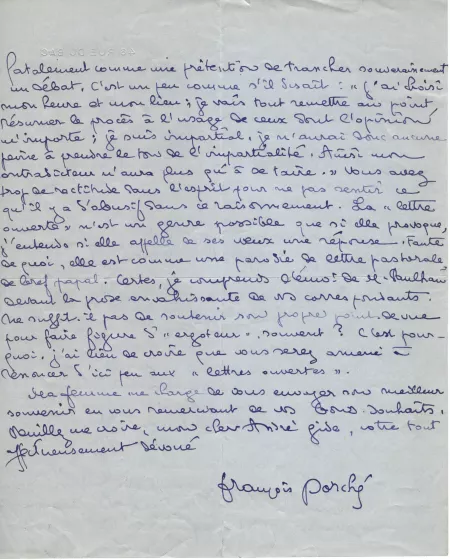 fatalement comme une prétention de trancher souverainement
un débat. C'est un peu comme s'il disait : « j'ai choisi
mon heure et mon lieu ; je vais tout remettre au point
résumer le procès à l'usage de ceux dont l'opinion
m'importe ; je suis impartial, je n'aurai donc aucune
peine à prendre le ton de l'impartialité. Ainsi mon
contradicteur n'aura plus qu'à se taire. » Vous avez
trop de rectitude dans l'esprit pour ne pas sentir ce
qu'il y a d'abusif dans ce raisonnement. La « lettre
ouverte » n'est un genre possible que si elle provoque,
j'entends si elle appelle de ses vœux une réponse. Faute
de quoi, elle est comme une parodie de lettre pastorale,
de bref papal. Certes, je comprends l'émoi de M. Paulhan
devant la prose envahissante de vos correspondants.
Ne suffit-il pas de soutenir son propre point de vue
pour faire figure d'« ergoteur », souvent ? C'est pour-
quoi, j'ai lieu de croire que vous serez amené à
renoncer d'ici peu aux « lettres ouvertes ».
Ma femme me charge de vous envoyer son meilleur
souvenir en vous remerciant de vos bons souhaits.
Veuillez me croire, mon cher André Gide, votre tout
affectueusement dévoué
François Porché